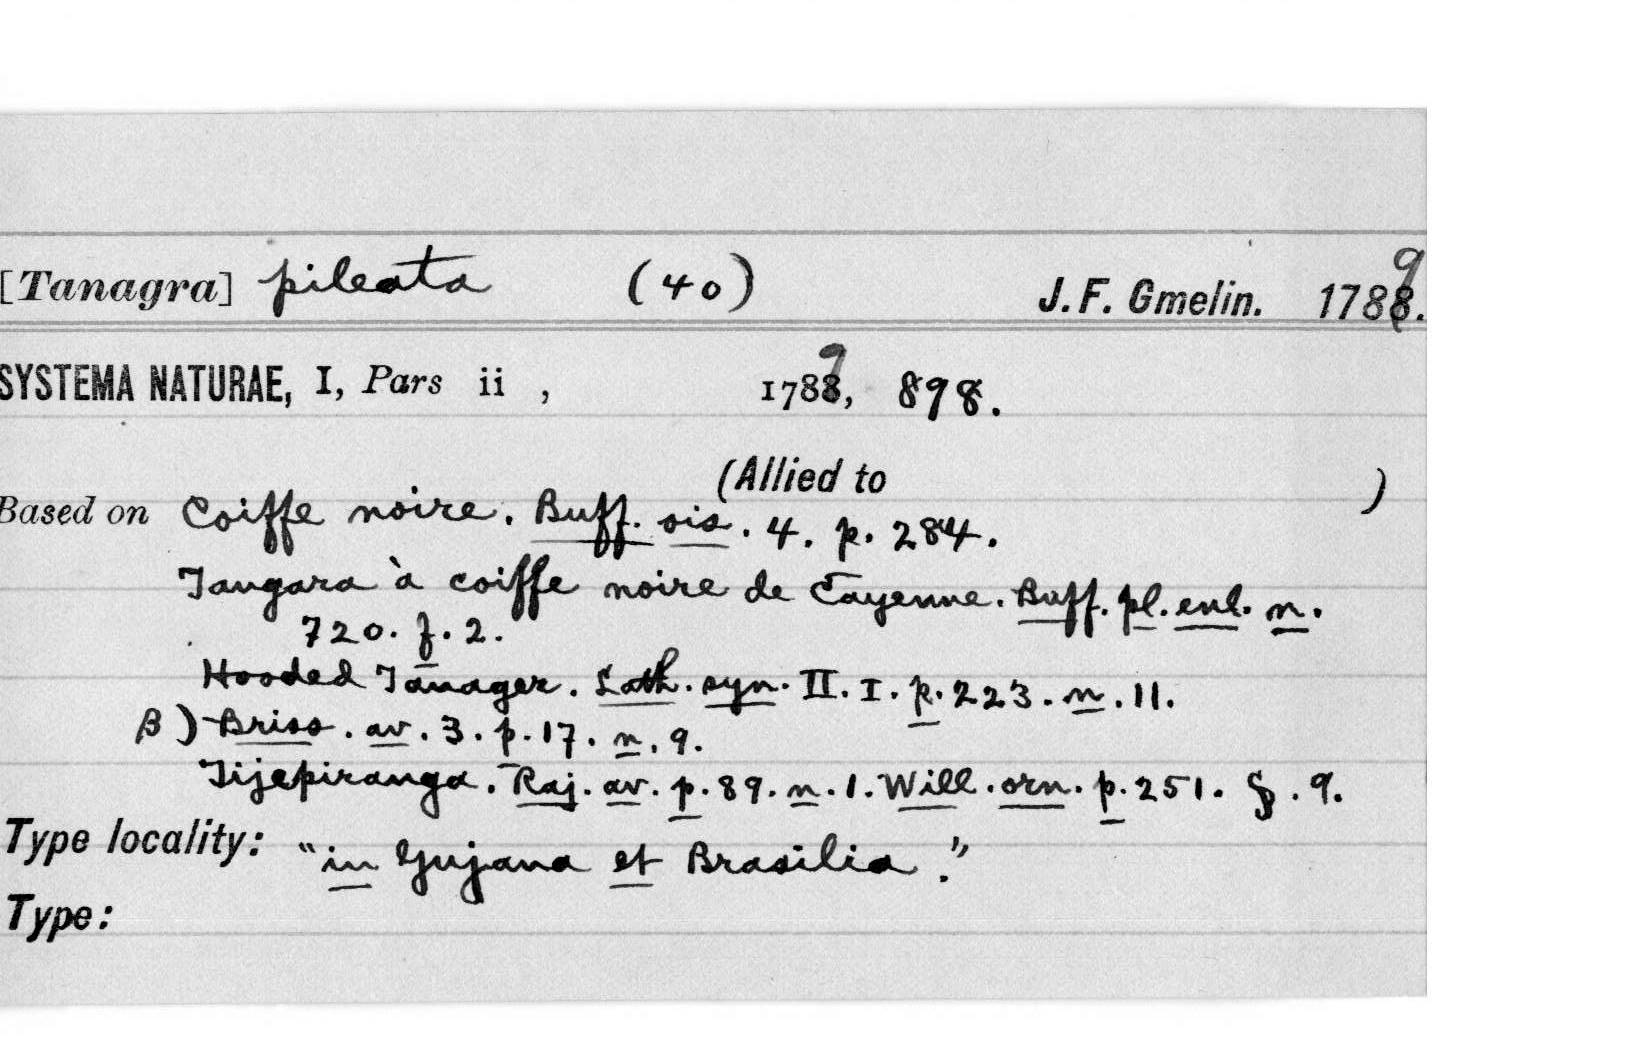 [Tanagra] pileata (40) J. F. Gmelin. 1789.
SYSTEMA NATURAE, I, Pars ii , 1789, 898.
(Allied to )
Based on Coiffe noire. Buff. ois. 4. p. 284.
Tangara à coiffe noire de Cayenne. Buff. pl. enl. n.
720. f. 2.
Hooded Tanager. Lath. syn. II. I. p. 223. n. 11.
β) Briss. av. 3. p. 17. n. 9.
Tijepiranga. Raj. av. p. 89. n. 1. Will. orn. p. 251. §. 9.
Type locality: "in Gujana et Brasilia."
Type: